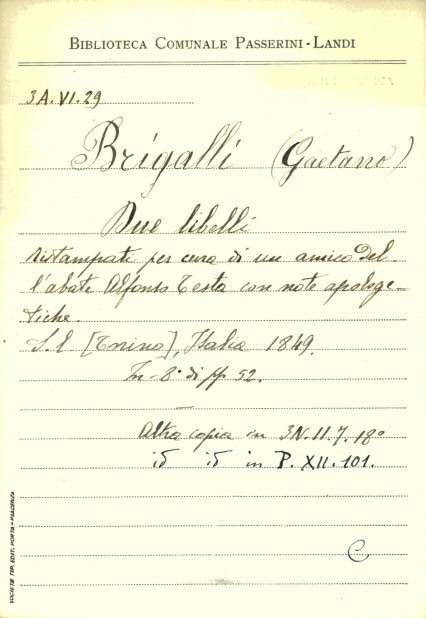 BIBLIOTECA COMUNALE PASSERINI-LANDI
3A.VI.29
Brigalli (Gaetano)
Due libelli
ristampati per cura di un amico del
l'abate Alfonso Testa con note apologe-
tiche.
S. l [Torino], Italia 1849.
In-8° di pp 52.
Altra copia in 3N.II.7.18°
id id in P. XII. 101.
C
SOCIETÀ TIP. EDIT. PORTA - PIACENZA